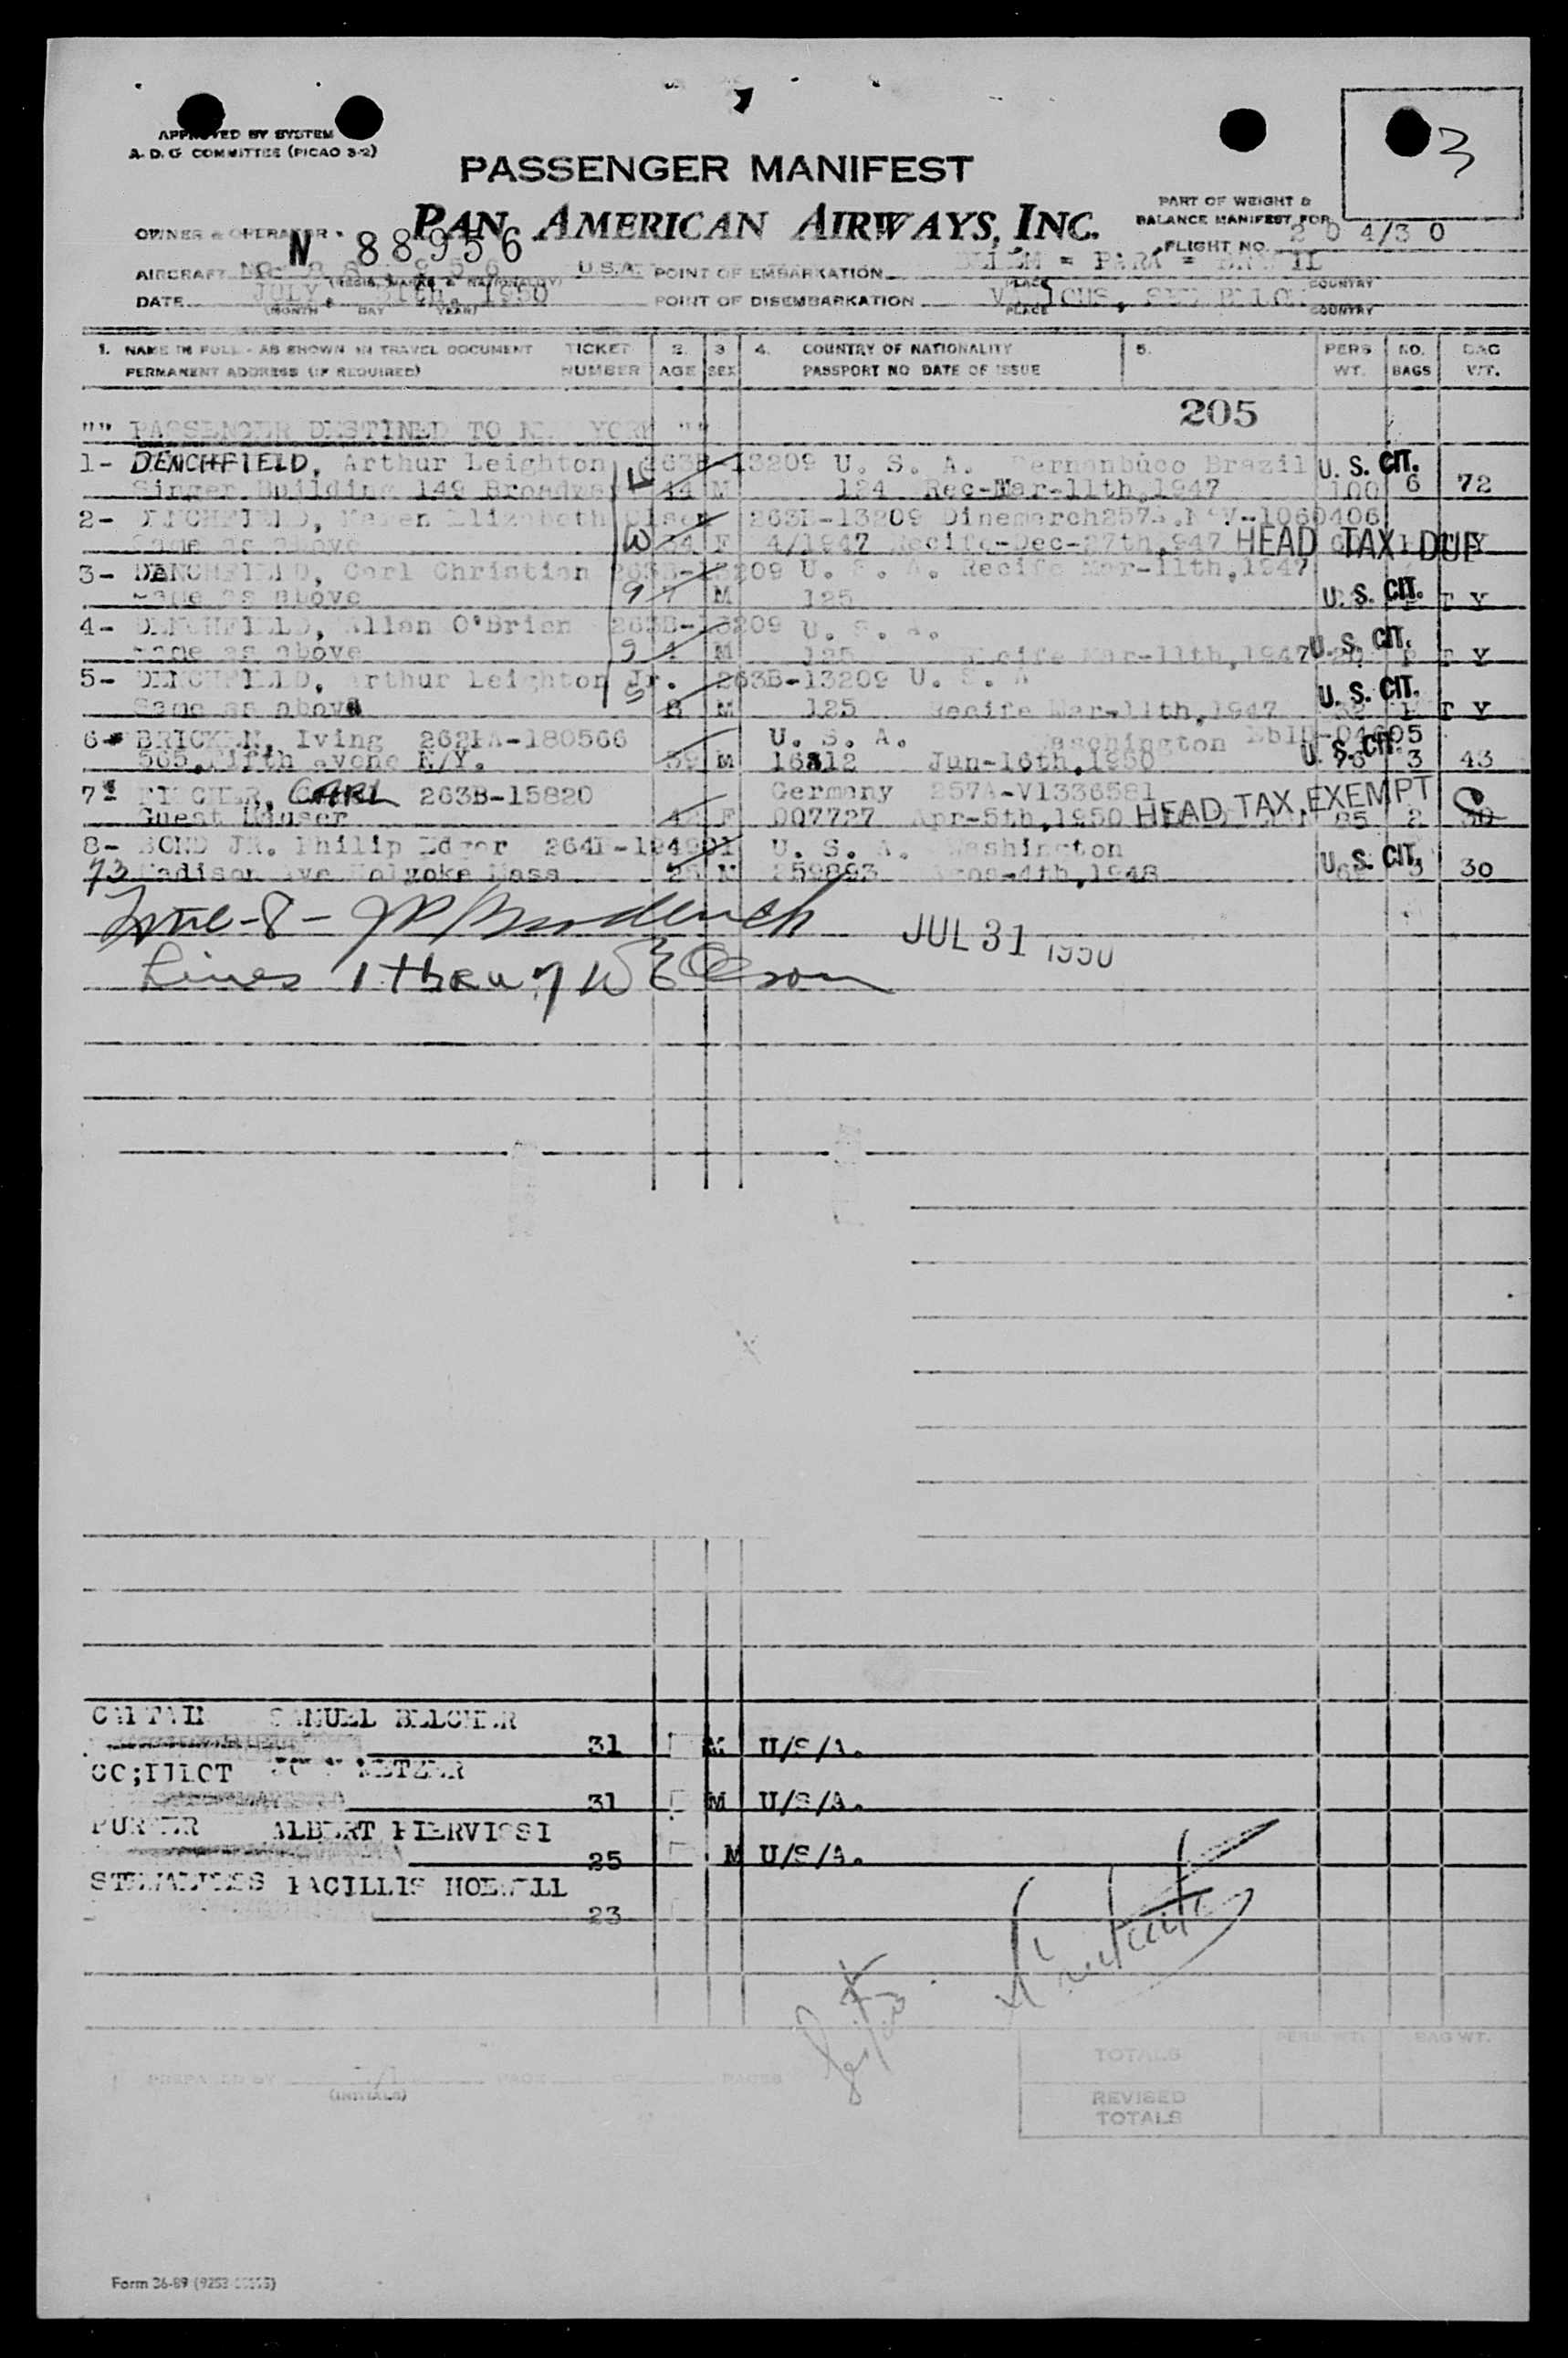 APPROVED BY SYSTEM
A. D. G COMMITTEE (PICAO 3-2)
3
PASSENGER MANIFEST
PAN AMERICAN AIRWAYS, INC.
PART OF WEIGHT &
BALANCE MANIFEST FOR
FLIGHT NO. 2 0 4/3 0
OWNER & OPERATOR
N 88956
AIRCRAFT U.S.A. POINT OF EMBARKATION BELEM = PARA = BRAZIL
(REGIS. MARKS & NATIONALITY) PLACE COUNTRY
DATE JULY, 1950 POINT OF DISEMBARKATION
(MONTH DAY YEAR) PLACE COUNTRY
1. NAME IN FULL - AS SHOWN IN TRAVEL DOCUMENT TICKET 2. 3 4. COUNTRY OF NATIONALITY 5. PERS NO. BAG
PERMANENT ADDRESS (IF REQUIRED) NUMBER AGE SEX PASSPORT NO DATE OF ISSUE WT. BAGS WT.
205
"" PASSENGER DESTINED TO YORK ""
1- DENCHFIELD, Arthur Leighton 263B-13209 U. S. A. Pernanbuco Brazil U. S. CIT.
Singer Building 149 Broadway 44 M 124 Rec-Mar-11th,1947 100 6 72
2- DENCHFIELD, Karen Elizabeth Olsen 263B-13209 Dinemarch
Same as above 34 F 4/1947 Recife-Dec-27th,947 HEAD TAX DUE
3- DENCHFIELD, Carl Christian 263B-13209 U. S. A. Recife Mar-11th,1947
Same as above 9 M 125 U. S. CIT. T Y
4- DENCHFIELD, Allan O'Brien 263B-13209 U. S. A.
Same as above M 125 Recife Mar-11th,1947 U. S. CIT. T Y
5- DENCHFIELD, Arthur Leighton Jr. 263B-13209 U. S. A
Same as above 8 M 125 Recife Mar-11th,1947 U. S. CIT. T Y
6- BRICKEN, Iving 262EA-180566 U. S. A. Waschington
565,Fifth avene N/Y. 59 M 16312 Jun-16th,1950 U. S. CIT. 3 43
7- FISCHER, CARL 263B-15820 Germany 257A-V1336581
Guest 42 F 007727 Apr-5th,1950 HEAD TAX EXEMPT 85 2
8- BOND JR. Philip Edgar U. S. A. Washington
73 Madison Ave Holyoke Mass M 259893 4th,1948 U. S. CIT. 3 30
Line-8-
JUL 31 1950
Lines 1 thru 7 W E Olson
CAPTAIN SAMUEL BELCHER
31 M U/S/A.
CO;PILOT METZER
31 M U/S/A.
PURSER ALBERT PIERVISSI
25 M U/S/A.
STEWARDESS
23
TOTALS PERS. WT. BAG WT.
PREPARED BY PAGE OF PAGES
(INITIALS)
REVISED
TOTALS
Form 26-89